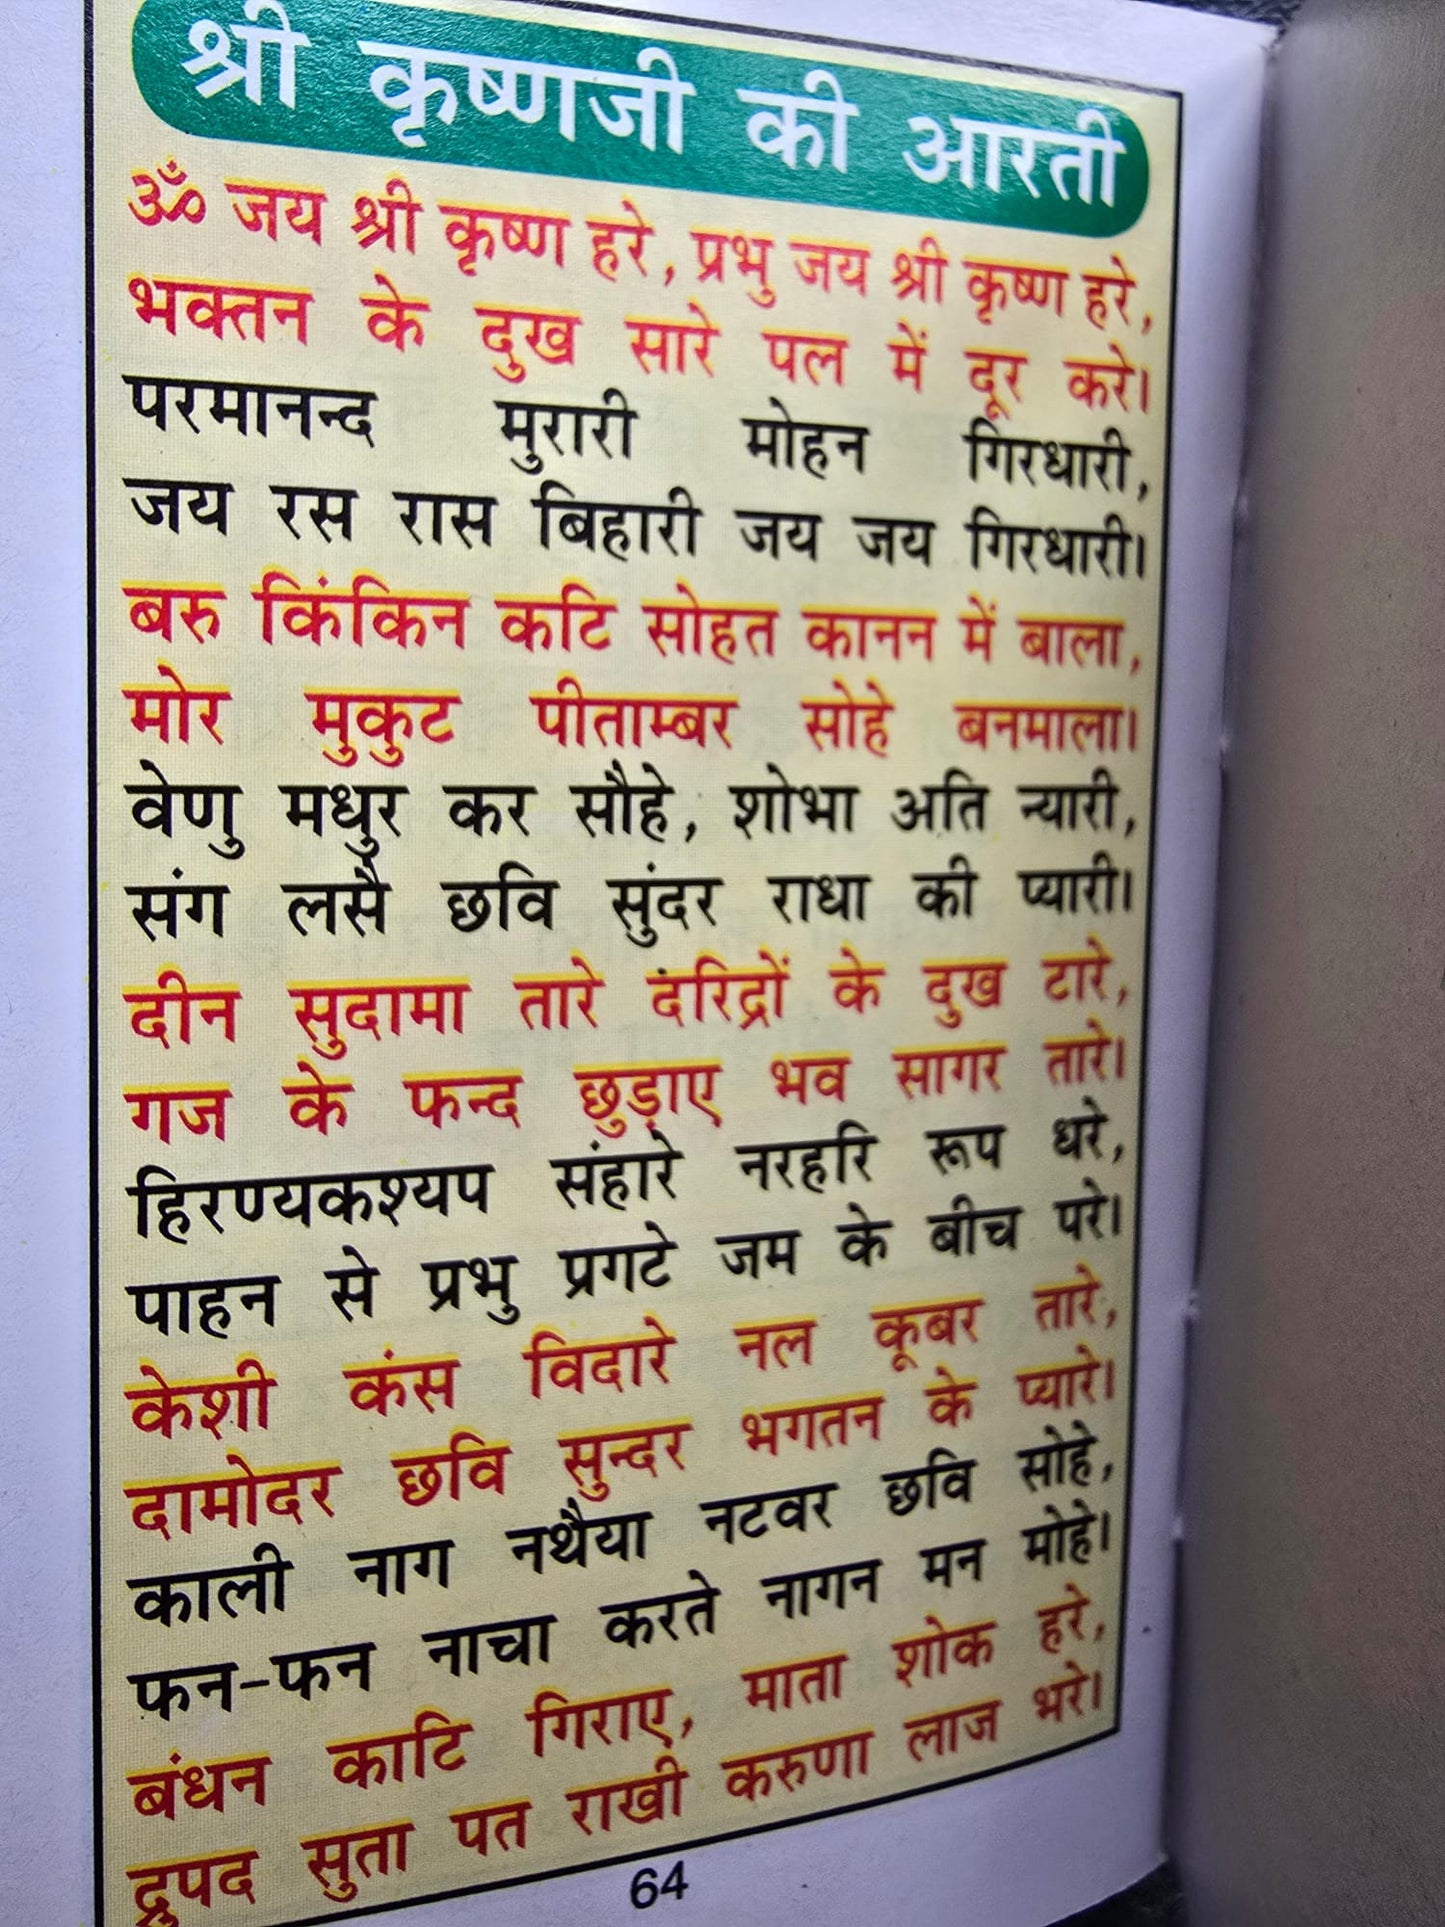 श्री कृष्णजी की आरती
ॐ जय श्री कृष्ण हरे, प्रभु जय श्री कृष्ण हरे,
भक्तन के दुख सारे पल में दूर करे।
परमानन्द मुरारी मोहन गिरधारी,
जय रस रास बिहारी जय जय गिरधारी।
बरु किंकिन कटि सोहत कानन में बाला,
मोर मुकुट पीताम्बर सोहे बनमाला।
वेणु मधुर कर सौहे, शोभा अति न्यारी,
संग लसै छवि सुंदर राधा की प्यारी।
दीन सुदामा तारे दंरिद्रों के दुख टारे,
गज के फन्द छुड़ाए भव सागर तारे।
हिरण्यकश्यप संहारे नरहरि रूप धरे,
पाहन से प्रभु प्रगटे जम के बीच परे।
केशी कंस विदारे नल कूबर तारे,
दामोदर छवि सुन्दर भगतन के प्यारे।
काली नाग नथैया नटवर छवि सोहे,
फन-फन नाचा करते नागन मन मोहे।
बंधन काटि गिराए, माता शोक हरे,
द्रुपद सुता पत राखी करुणा लाज भरे।
64